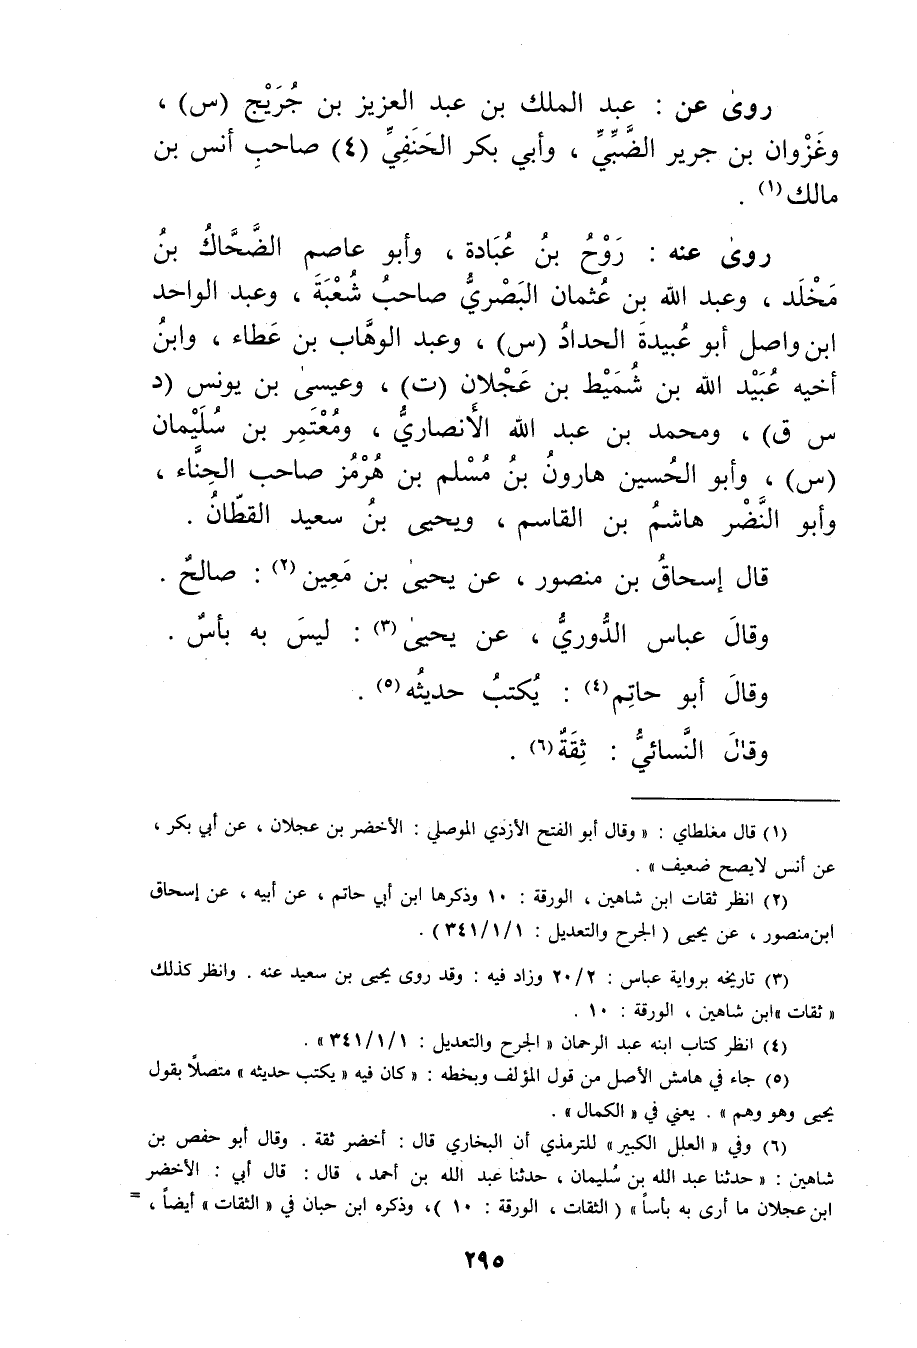 روىٰ عن : عبد الملك بن عبد العزيز بن جُرَيْج (س) ،
وغَزْوان بن جرير الضَّبِّيِّ ، وأبي بكر الحَنَفِيِّ (٤) صاحبِ أنس بن
مالك(١) .
روىٰ عنه : رَوْحُ بنُ عُبَادة ، وأبو عاصم الضَّحَّاكُ بنُ
مَخْلَد ، وعبد الله بن عُثمان البَصْريُّ صاحبُ شُعْبَةَ ، وعبد الواحد
ابن واصل أبو عُبيدةَ الحدادُ (س) ، وعبد الوهَّاب بن عَطاء ، وابنُ
أخيه عُبَيْد الله بن شُمَيْط بن عَجْلان (ت) ، وعيسىٰ بن يونس (د
س ق) ، ومحمد بن عبد الله الأَنصاريُّ ، ومُعْتَمِر بن سُلَيْمان
(س) ، وأبو الحُسين هارونُ بنُ مُسْلم بن هُرْمُز صاحب الحِنَّاء ،
وأبو النَّضْر هاشمُ بن القاسم ، ويحيى بنُ سعيد القطّانُ .
قال إسحاقُ بن منصور ، عن يحيىٰ بن مَعِين(٢) : صالحٌ .
وقالَ عباس الدُّوريُّ ، عن يحيىٰ(٣) : ليسَ به بأسٌ .
وقالَ أبو حاتِم(٤) : يُكتبُ حديثُه(٥) .
وقالَ النَّسائيُّ : ثِقَةٌ(٦) .
(١) قال مغلطاي : « وقال أبو الفتح الأزدي الموصلي : الأخضر بن عجلان ، عن أبي بكر ،
عن أنس لايصح ضعيف » .
(٢) انظر ثقات ابن شاهين ، الورقة : ١٠ وذكرها ابن أبي حاتم ، عن أبيه ، عن إسحاق
ابن منصور ، عن يحيى ( الجرح والتعديل : ٣٤١/١/١ ) .
(٣) تاريخه برواية عباس : ٢٠/٢ وزاد فيه : وقد روى يحيى بن سعيد عنه . وانظر كذلك
« ثقات »ابن شاهين ، الورقة : ١٠ .
(٤) انظر كتاب ابنه عبد الرحمان « الجرح والتعديل : ٣٤١/١/١ » .
(٥) جاء في هامش الأصل من قول المؤلف وبخطه : « كان فيه « يكتب حديثه » متصلاً بقول
يحيى وهو وهم » . يعني في « الكمال » .
(٦) وفي « العلل الكبير » للترمذي أن البخاري قال : أخضر ثقة . وقال أبو حفص بن
شاهين : « حدثنا عبد الله بن سُليمان ، حدثنا عبد الله بن أحمد ، قال : قال أبي : الأخضر
ابن عجلان ما أرى به بأساً » ( الثقات ، الورقة : ١٠ )، وذكره ابن حبان في « الثقات » أيضاً ، =
٢٩٥